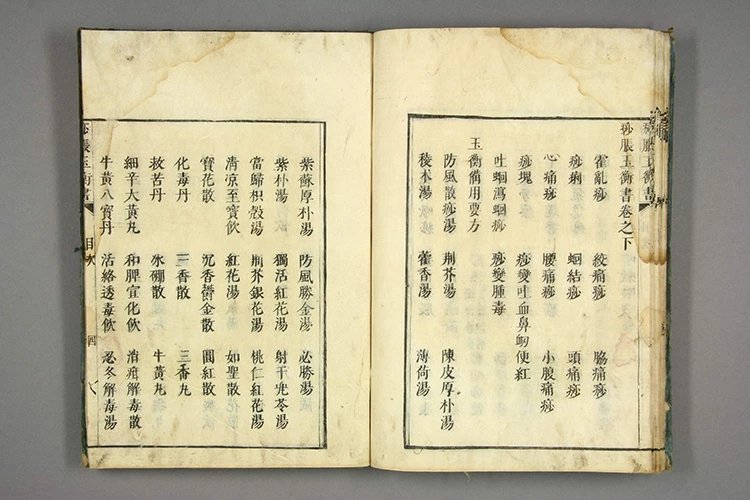 痧脹玉衡書
痧脹玉衡書卷之下
霍亂痧 絞痛痧 脇痛痧
痧痢 蛔結痧 頭痛痧
心痛痧 腰痛痧 小腹痛痧
痧塊 痧變吐血鼻衄便紅
吐蛔瀉蛔痧 痧變腫毒
玉衡備用要方
防風散痧湯 荊芥湯 陳皮厚朴湯
稜术湯 藿香湯 薄荷湯
紫蘇厚朴湯 防風勝金湯 必勝湯
紫朴湯 獨活紅花湯 射干兜苓湯
當歸枳殼湯 荊芥銀花湯 桃仁紅花湯
清凉至寶飲 紅花湯 如聖散
寶花散 沉香鬱金散 圓紅散
化毒丹 三香散 三香丸
救苦丹 氷硼散 牛黃丸
細辛大黃丸 和脾宣化飲 消疳解毒散
牛黃八寶丹 活絡透毒飲 忍冬解毒湯
痧脹玉衡書 目次 四